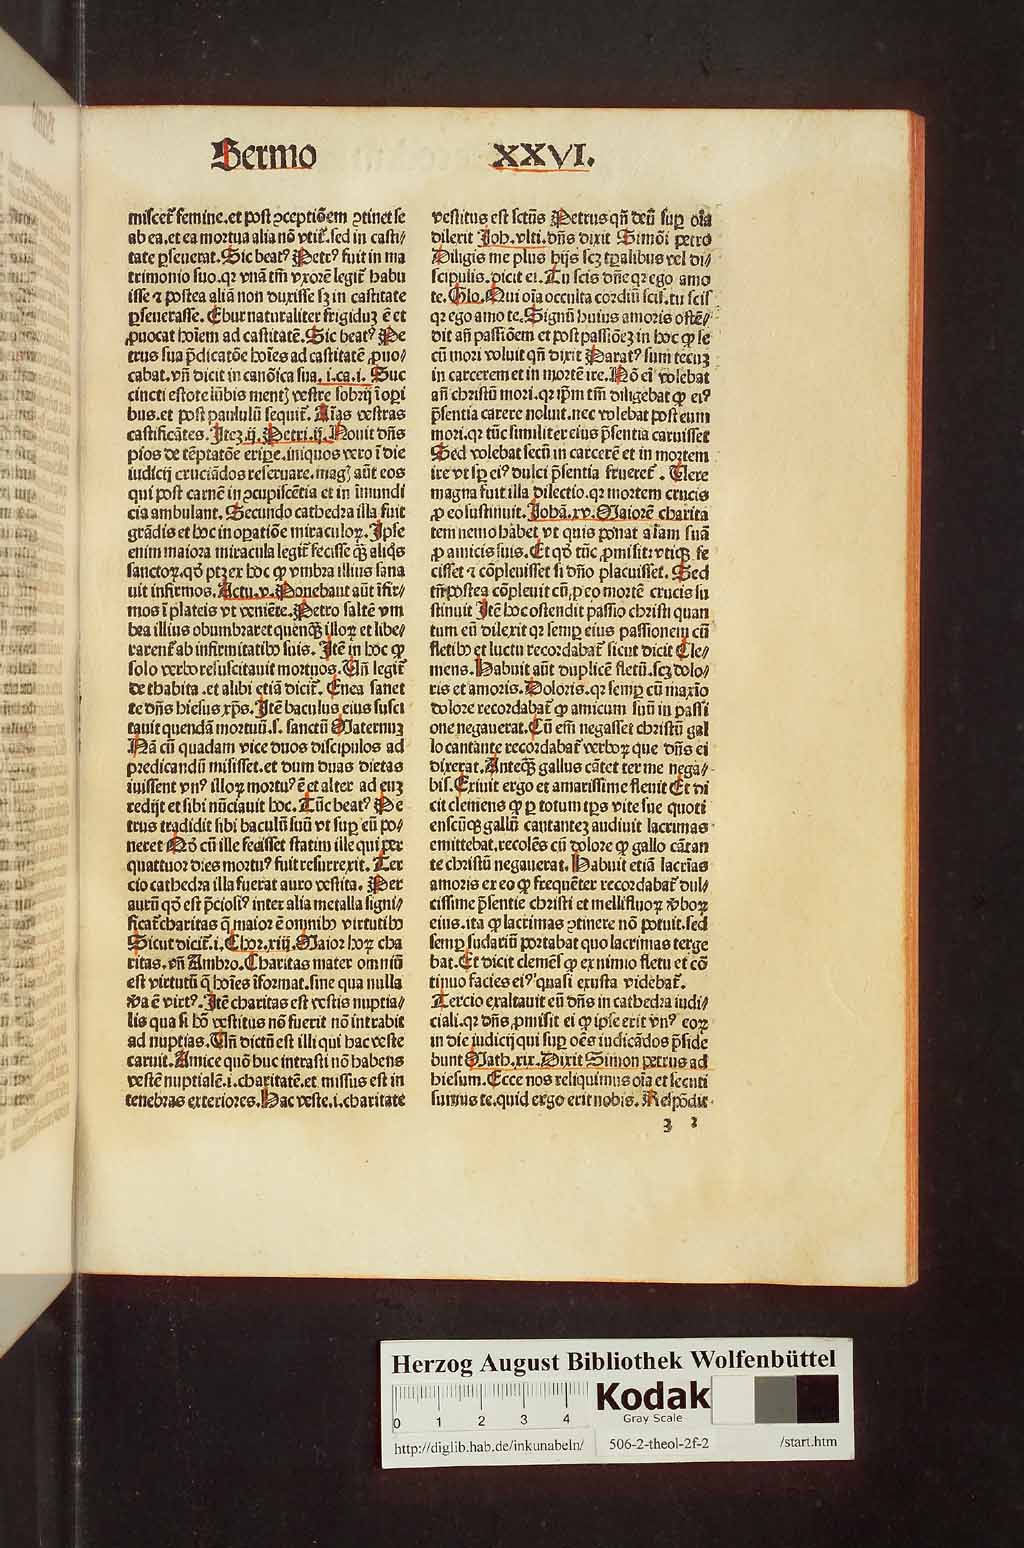 Sermo XXVI.
miscet᷑ femine.et post ꝯceptiōem ꝯtinet se
ab ea.et ea mortua alia nō vtit᷑.sed in casti⸗
tate ꝑseuerat. Sic beatꝰ Petrꝰ fuit in ma
trimonio suo.qꝛ vnā tm̄ vxorē legit᷑ habu
isse ⁊ postea aliā non duxisse sꝫ in castitate
ꝑseuerasse. Ebur naturaliter frigiduꝫ ē et
ꝓuocat hoīem ad castitatē. Sic beatꝰ Pe
trus sua p̄dicatōe hoīes ad castitatē ꝓuo⸗
cabat.vn̄ dicit in canōica sua. i.ca.i. Suc
cincti estote lūbis mentꝭ vestre sobrij ī oꝑi
bus.et post paululū sequit᷑. Aīas vestras
castificātes. Iteꝫ.ij. Petri.ij. Nouit dn̄s
pios de tēptatōe eriꝑe.iniquos vero ī die
iudicij cruciādos reseruare.magꝭ aūt eos
qui post carnē in ꝯcupiscētia et in īmundi
cia ambulant. Secundo cathedra illa fuit
grādis et hoc in oꝑatiōe miraculoꝝ. Ipse
enim maiora miracula legit᷑ fecisse qꝫ̄ aliqͥs
sanctoꝝ.qd̓ ptꝫ ex hoc ꝙ vmbra illius sana
uit infirmos. Actu.v. Ponebant aūt īfir⸗
mos ī plateis vt veniēte. Petro saltē vm
bra illius obumbraret quenqꝫ̄ illoꝝ et libe⸗
rarent᷑ ab infirmitatibꝰ suis. Itē in hoc ꝙ
solo verbo resuscitauit mortuos. Un̄ legit᷑
de thabita .et alibi etiā dicit᷑. Enea sanet
te dn̄s hiesus xp̄s. Itē baculus eius susci
tauit quendā mortuū.s. sanctū Maternuꝫ
Nā cū quadam vice duos discipulos ad
predicandū misisset.et dum duas dietas
iuissent vnꝰ illoꝝ mortuꝰ ē et alter ad euꝫ
redijt et sibi nūciauit hoc. Tūc beatꝰ Pe
trus tradidit sibi baculū suū vt suꝑ eū po⸗
neret Qd̓ cū ille fecisset statim ille qui per
quattuor dies mortuꝰ fuit resurrexit. Ter
cio cathedra illa fuerat auro vestita. Per
aurū qd̓ est p̄ciosiꝰ inter alia metalla signi⸗
ficat᷑ charitas q̄ maior ē omnibꝰ virtutibꝰ
Sicut dicit᷑.i. Chor.xiij. Maior hoꝝ cha
ritas. vn̄ Ambro. Charitas mater omniū
est virtutū q̄ hoīes īformat.sine qua nulla
v̓a ē virtꝰ. Itē charitas est vestis nuptia⸗
lis qua si hō vestitus nō fuerit nō intrabit
ad nuptias. Un̄ dictū est illi qui hac veste
caruit. Amice quō huc intrasti nō habens
vestē nuptialē.i.charitatē.et missus est in
tenebras exteriores. Hac veste.i.charitate
vestitus est sctūs Petrus qn̄ deū suꝑ oīa
dilexit Joh.vlti.dn̄s dixit Simōi petro
Diligis me plus hijs scꝫ tꝑalibus vel di⸗
scipulis.dicit ei. Tu scis dn̄e qꝛ ego amo
te. Glo. Qui oīa occulta cordiū scis.tu scis
qꝛ ego amo te. Signū huius amoris ostē⸗
dit an̄ passiōem et post passiōeꝫ in hoc ꝙ se
cū mori voluit qn̄ dixit Paratꝰ sum tecuꝫ
in carcerem et in mortē ire. Nō ei̓ volebat
an̄ christū mori.qꝛ ip̄m tm̄ diligebat ꝙ eiꝰ
p̄sentia carere noluit.nec volebat post eum
mori.qꝛ tūc similiter eius p̄sentia caruisset
Sed volebat secū in carcerē et in mortem
ire vt sꝑ eiꝰ dulci p̄sentia frueret᷑ . Uere
magna fuit illa dilectio.qꝛ mortem crucis
ꝓ eo sustinuit. Johā.xv. Maiorē charita
tem nemo habet vt quis ponat aīam suā
ꝓ amicis suis. Et qd̓ tūc ꝓmisit: vtiqꝫ fe
cisset ⁊ cōpleuisset si dn̄o placuisset. Sed
tn̄ postea cōpleuit cū ꝓ eo mortē crucis su
stinuit Itē hoc ostendit passio christi quan
tum eū dilexit qꝛ semꝑ eius passionem cū
fletibꝰ et luctu recordabat᷑ sicut dicit Cle⸗
mens. Habuit aūt duplicē fletū.scꝫ dolo⸗
ris et amoris. Doloris.qꝛ semꝑ cū maxīo
dolore recordabat᷑ ꝙ amicum suū in passi
one negauerat. Cū em̄ negasset christū gal
lo cantante recordabat᷑ verboꝝ que dn̄s ei
dixerat. Anteqꝫ̄ gallus cātet ter me nega⸗
bis. Exiuit ergo et amarissime fleuit Et di
cit clemens ꝙ ꝑ totum tꝑs vite sue quoti
enscūqꝫ gallū cantanteꝫ audiuit lacrimas
emittebat.recolēs cū dolore ꝙ gallo cātan
te christū negauerat. Habuit etiā lacrīas
amoris ex eo ꝙ frequēter recordabat᷑ dul⸗
cissime p̄sentie christi et mellifluoꝝ v̓boꝝ
eius.ita ꝙ lacrimas ꝯtinere nō potuit.sed
semꝑ sudariū portabat quo lacrimas terge
bat. Et dicit clemēs ꝙ ex nimio fletu et cō
tinuo facies eiꝰ quasi exusta videbat᷑.
Tercio exaltauit eū dn̄s in cathedra iudi⸗
ciali.qꝛ dn̄s ꝓmisit ei ꝙ ipse erit vnꝰ eoꝝ
in die iudicij qui suꝑ oēs iudicādos p̄side
bunt Math.xix. Dixit Simon petrus ad
hiesum. Ecce nos reliquimus oīa et secuti
sumus te.quid ergo erit nobis. Respōdit
ʒ 2
Herzog August Bibliothek Wolfenbüttel
0 1 2 3 4
Kodak
Gray Scale
http://diglib.hab.de/inkunabeln/ 506-2-theol-2f-2 /start.htm